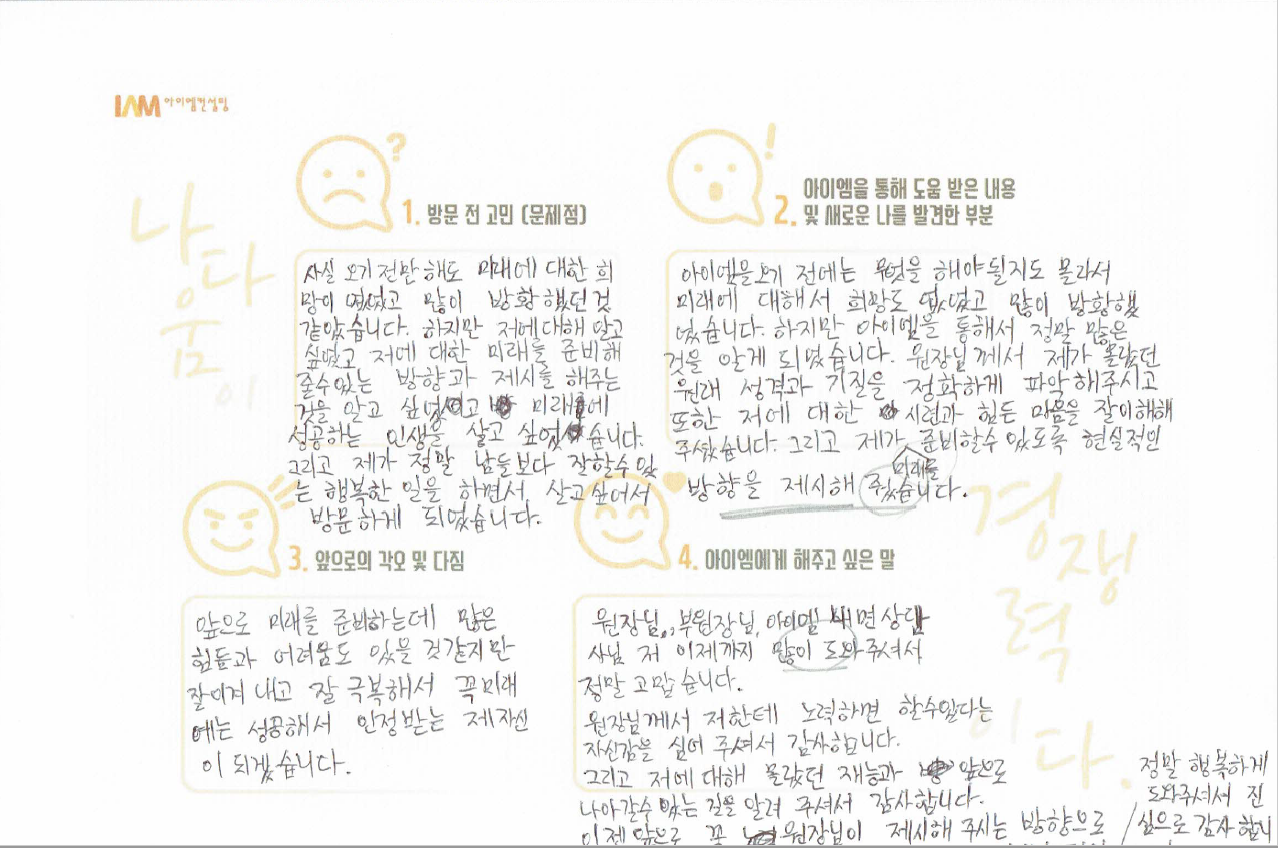 IAM 아이엠컨설팅
나다움이
1. 방문 전 고민 (문제점)
사실 오기 전만 해도 미래에 대한 희
망이 없었고 많이 방황했던 것
같았습니다. 하지만 저에대해 알고
싶었고 저에 대한 미래를 준비해
줄수있는 방향과 제시를 해주는
것을 알고 싶었고 미래에
성공하는 인생을 살고 싶었습니다.
그리고 제가 정말 남들보다 잘할수 있
는 행복한 일을 하면서 살고 싶어서
방문하게 되었습니다.
2. 아이엠을 통해 도움 받은 내용
및 새로운 나를 발견한 부분
아이엠을오기 전에는 무엇을 해야될지도 몰라서
미래에 대해서 희망도 없었고 많이 방황했
었습니다. 하지만 아이엠을 통해서 정말 많은
것을 알게 되었습니다. 원장님께서 제가 몰랐던
원래 성격과 기질을 정확하게 파악해주시고
또한 저에 대한 시련과 힘든 마음을 잘이해해
주셨습니다. 그리고 제가 미래를 준비할수 있도록 현실적인
방향을 제시해 주셨습니다.
3. 앞으로의 각오 및 다짐
앞으로 미래를 준비하는데 많은
힘듦과 어려움도 있을 것같지만
잘이겨 내고 잘 극복해서 꼭미래
에는 성공해서 인정받는 제자신
이 되겠습니다.
4. 아이엠에게 해주고 싶은 말
원장님, 부원장님, 아이엠 내면상담
사님 저 이제까지 많이 도와주셔서
정말 고맙습니다.
원장님께서 저한테 노력하면 할수있다는
자신감을 심어 주셔서 감사합니다.
그리고 저에대해 몰랐던 재능과 앞으로
나아갈수 있는 길을 알려 주셔서 감사합니다.
이젠 앞으로 꼭 원장님이 제시해 주시는 방향으로
정말 행복하게
도와주셔서 진
심으로 감사합니
경쟁력이다.